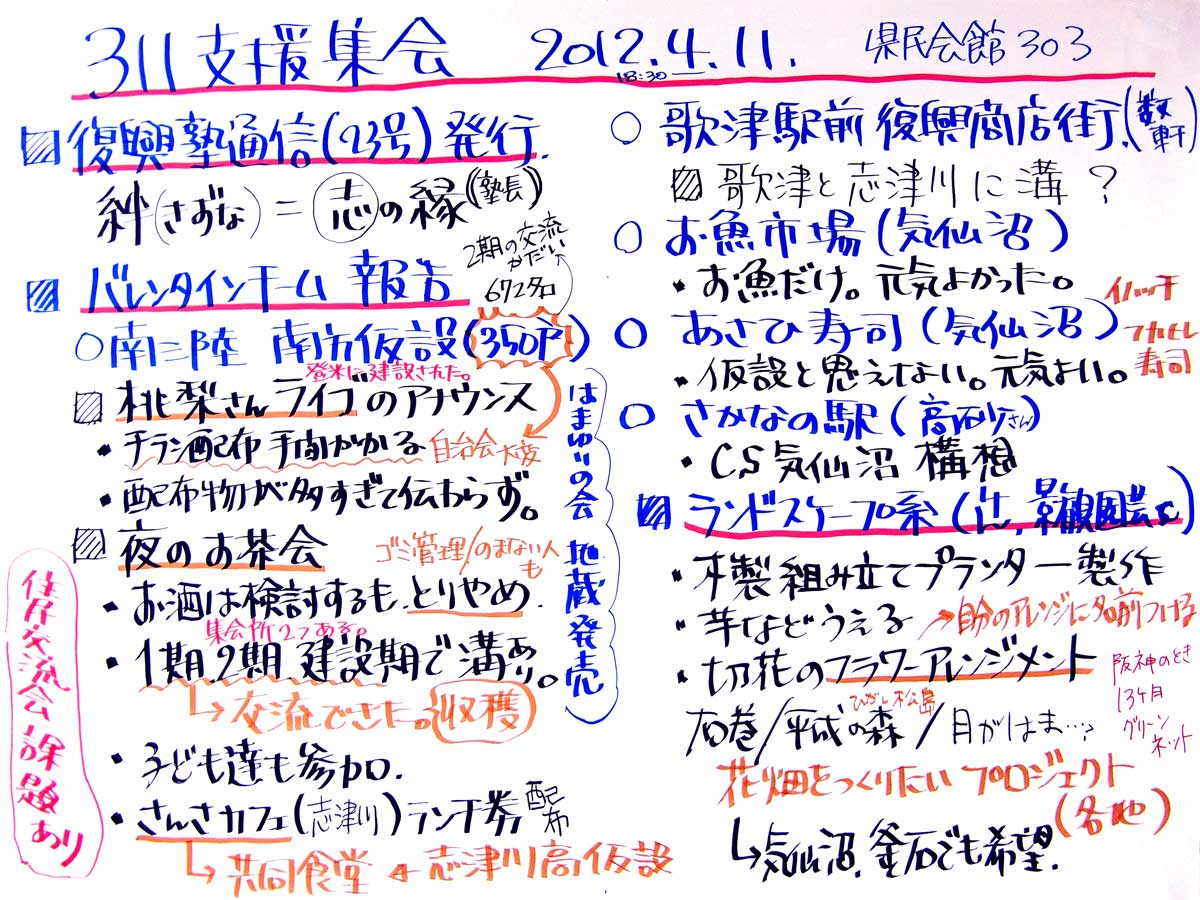 311支援集会 2012.4.11. 県民会館303
18:30
復興塾通信(23号)発行.
絆(きずな)=志の縁(塾長)
バレンタインチーム 報告
2期の交流
かだい
672名
○南三陸 南方仮設(350戸)
登米に建設された。
桃梨さんライブのアナウンス
・チラシ配布 手間かかる
自治会大変
・配布物が多すぎて伝わらず。
夜のお茶会
ゴミ管理/のまない人
も
・お酒は検討するも.とりやめ.
集会所2つある。
・1期.2期.建設期で溝あり。
↳交流できた。収穫
・子ども達も参加.
・さんさカフェ(志津川)ランチ券配布
↳共同食堂←志津川高仮設
はまゆりの会 地蔵発売
住民交流会課題あり
○歌津駅前 復興商店街.(数軒)
歌津と志津川に溝?
○お魚市場(気仙沼)
・お魚だけ。元気よかった。
○あさひ寿司(気仙沼)
フカヒレ
寿司
・仮設と思えない。元気よい。
○さかなの駅(高砂さん)
・CS気仙沼 構想
ランドスケープ系(辻ん,景観園芸se)
・木製組み立てプランター製作
・芋などうえる
→自分のアレンジに名前つける
・切花のフラワーアレンジメント
阪神のとき
13ヶ月
グリーン
ネット
ひがし松島
石巻/平成の森/月がはま…?
花畑をつくりたいプロジェクト
(各地)
↳気仙沼.釜石でも希望.